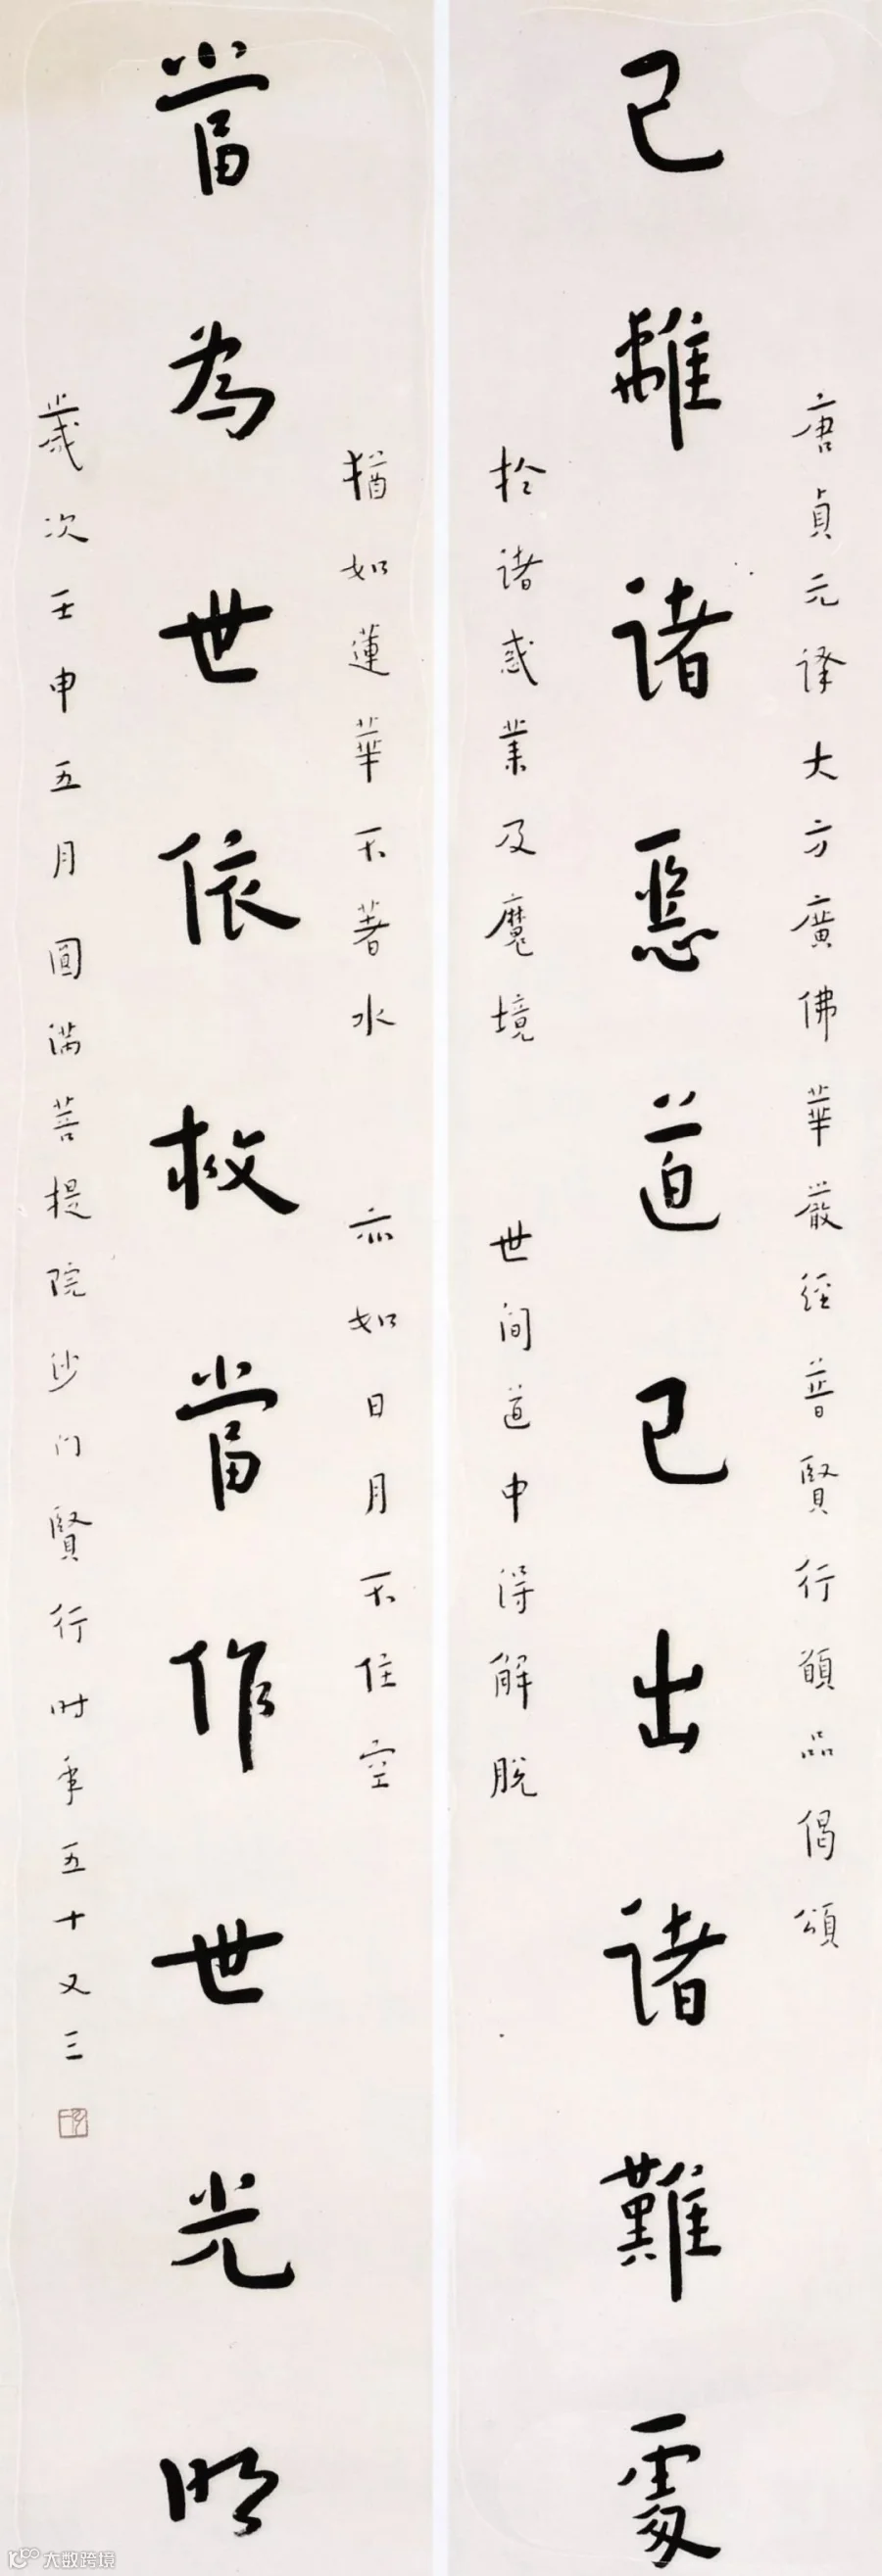 唐貞元译大方廣佛華嚴经普賢行願品偈頌
已離诸惡道已出诸難處
於诸惑業及魔境 世间道中得解脱
猶如蓮華不著水 亦如日月不住空
當為世依救當作世光明
歲次壬申五月圓满菩提院沙门賢行时年五十又三
大数跨境